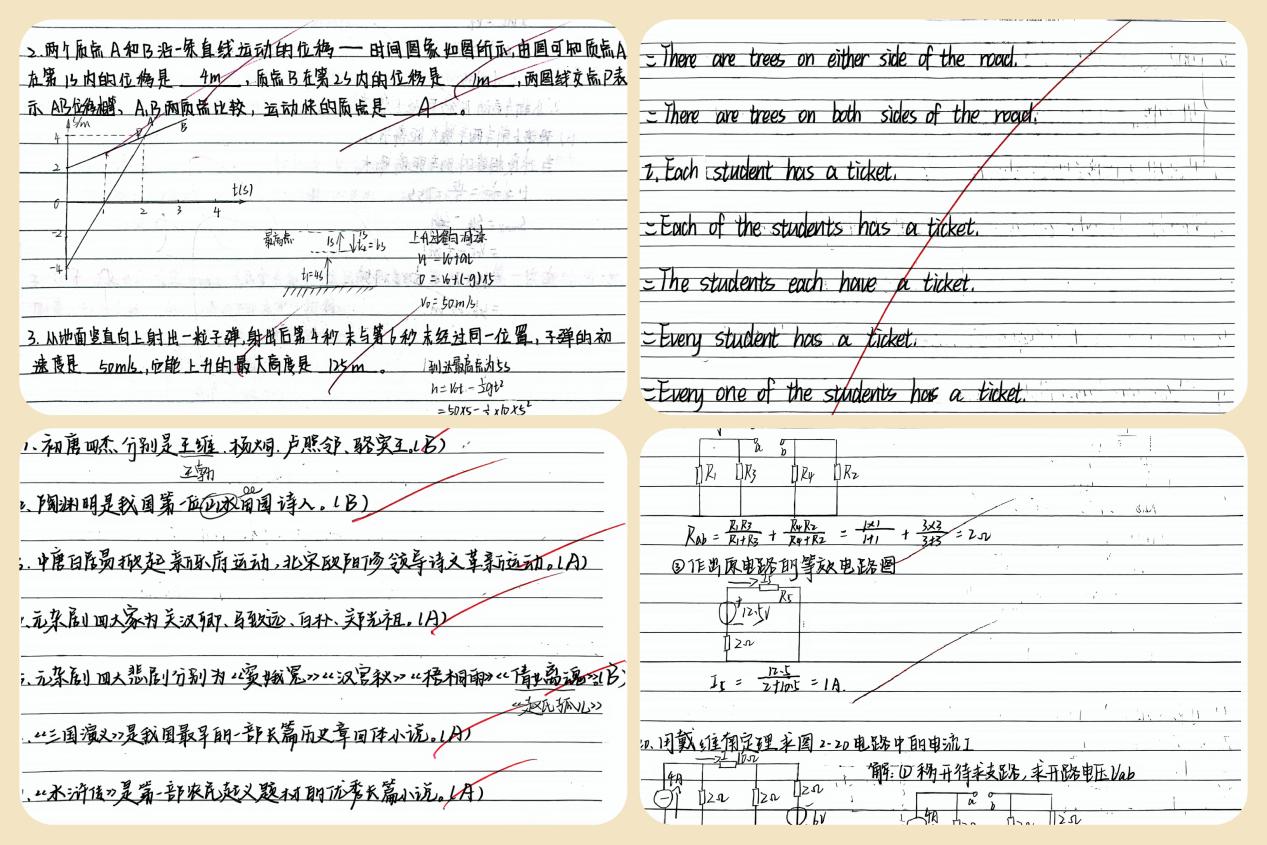 2.两个质点A和B沿一条直线运动的位移——时间图象如图所示,由图可知质点A
在第1s内的位移是 4m ,质点B在第2s内的位移是 1m ,两图线交点P表
示 AB位移相等、A,B两质点比较,运动快的质点是 A 。
x/m
A
B
P
4
2
0
-2
-4
1
2
3
4
t(s)
最高点
1s
1s
t₂=6s
t₁=4s
上升过程匀减速
Vt=V₀+at
0=V₀+(-g)×5
V₀=50m/s
3.从地面竖直向上射出一粒子弹,射出后第4秒末与第6秒末经过同一位置,子弹的初
速度是 50m/s,它能上升的最大高度是 125m 。
到达最高点为5s
h=V₀t-½gt²
=50×5-½×10×5²
=There are trees on either side of the road.
=There are trees on both sides of the road.
7.Each student has a ticket.
=Each of the students has a ticket.
=The students each have a ticket.
=Every student has a ticket.
=Every one of the students has a ticket.
1、初唐四杰分别是王维、杨炯、卢照邻、骆宾王。(B)
王勃
陶渊明是我国第一位田园诗人。(B)
中唐白居易掀起新乐府运动,北宋欧阳修领导诗文革新运动。(A)
元杂剧四大家为关汉卿、马致远、白朴、郑光祖。(A)
元杂剧四大悲剧分别为《窦娥冤》《汉宫秋》《梧桐雨》《倩女离魂》(B)
《赵氏孤儿》
《三国演义》是我国最早的一部长篇历史章回体小说。(A)
《水浒传》是第一部农民起义题材的优秀长篇小说。(A)
a
b
R₁
R₃
R₄
R₂
Rab=R₁R₃/R₁+R₃+R₄R₂/R₄+R₂=1×1/1+1+3×3/3+3=2Ω
③作出原电路的等效电路图
I₅
R₅
12.5V
2Ω
I₅=12.5/2+10.5=1A.
20.用戴维南定理求图2-20电路中的电流I
I
10Ω
4A
2Ω
2Ω
2Ω
6V
解:①移开待求支路,求开路电压Uab
a
b
4A
2Ω
2Ω
2Ω